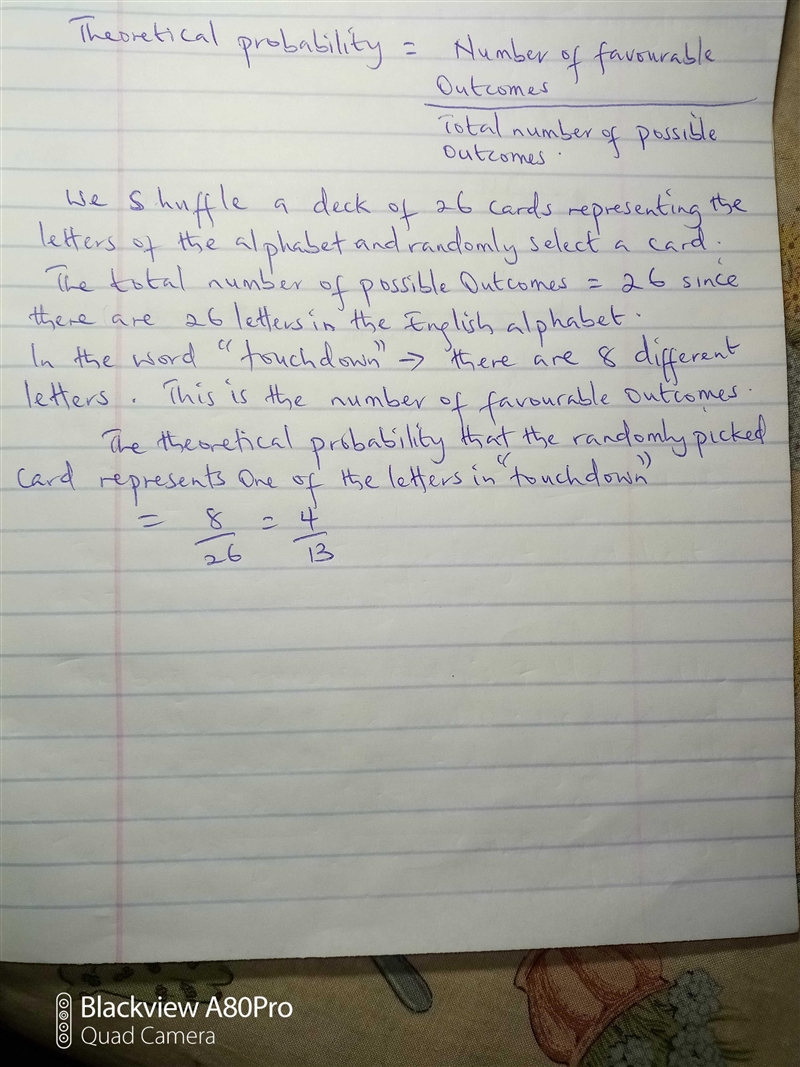 Theoretical probability = Number of favourable
Outcomes
Total number of possible
outcomes.
We shuffle a deck of 26 cards representing the
letters of the alphabet and randomly select a card.
The total number of possible Outcomes = 26 since
there are 26 letters in the English alphabet.
In the word "touchdown" → there are 8 different
letters. This is the number of favourable outcomes.
The theoretical probability that the randomly picked
card represents One of the letters in "touchdown"
= 8/26 = 4/13
Blackview A80Pro
Quad Camera